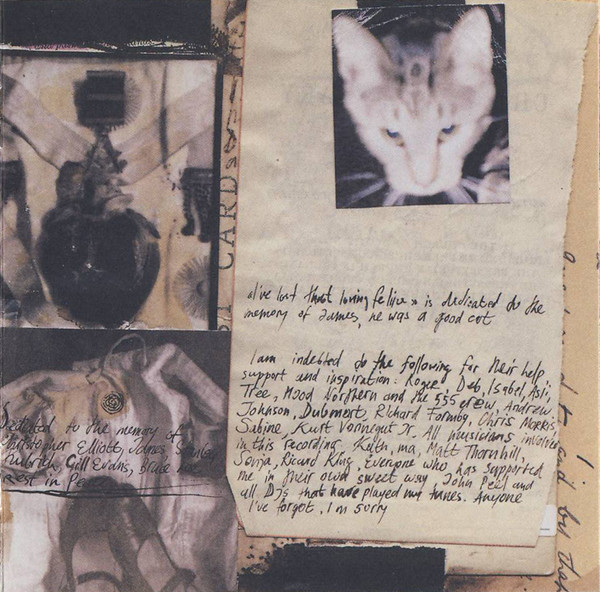 CARD
I've lost that loving feline » is dedicated to the
memory of James, he was a good cat
I am indebted to the following for their help
support and inspiration: Roger, Deb, Isabel, Asli,
Tree, Mood Northern and the 555 crew, Andrew
Johnson, Richard Formby, Chris Morris,
Sabine, Kurt Vonnegut Jr. All musicians involved
in this recording. Kath, ma, Matt Thornhill,
Sonja, Ricard King, Everyone who has supported
me in their own sweet way, John Peel and
all DJs that have played my tunes. Anyone
I've forgot, I'm sorry
Dedicated to the memory of
Christopher Elliott, James
Gill Evans, Bruce
Rest in